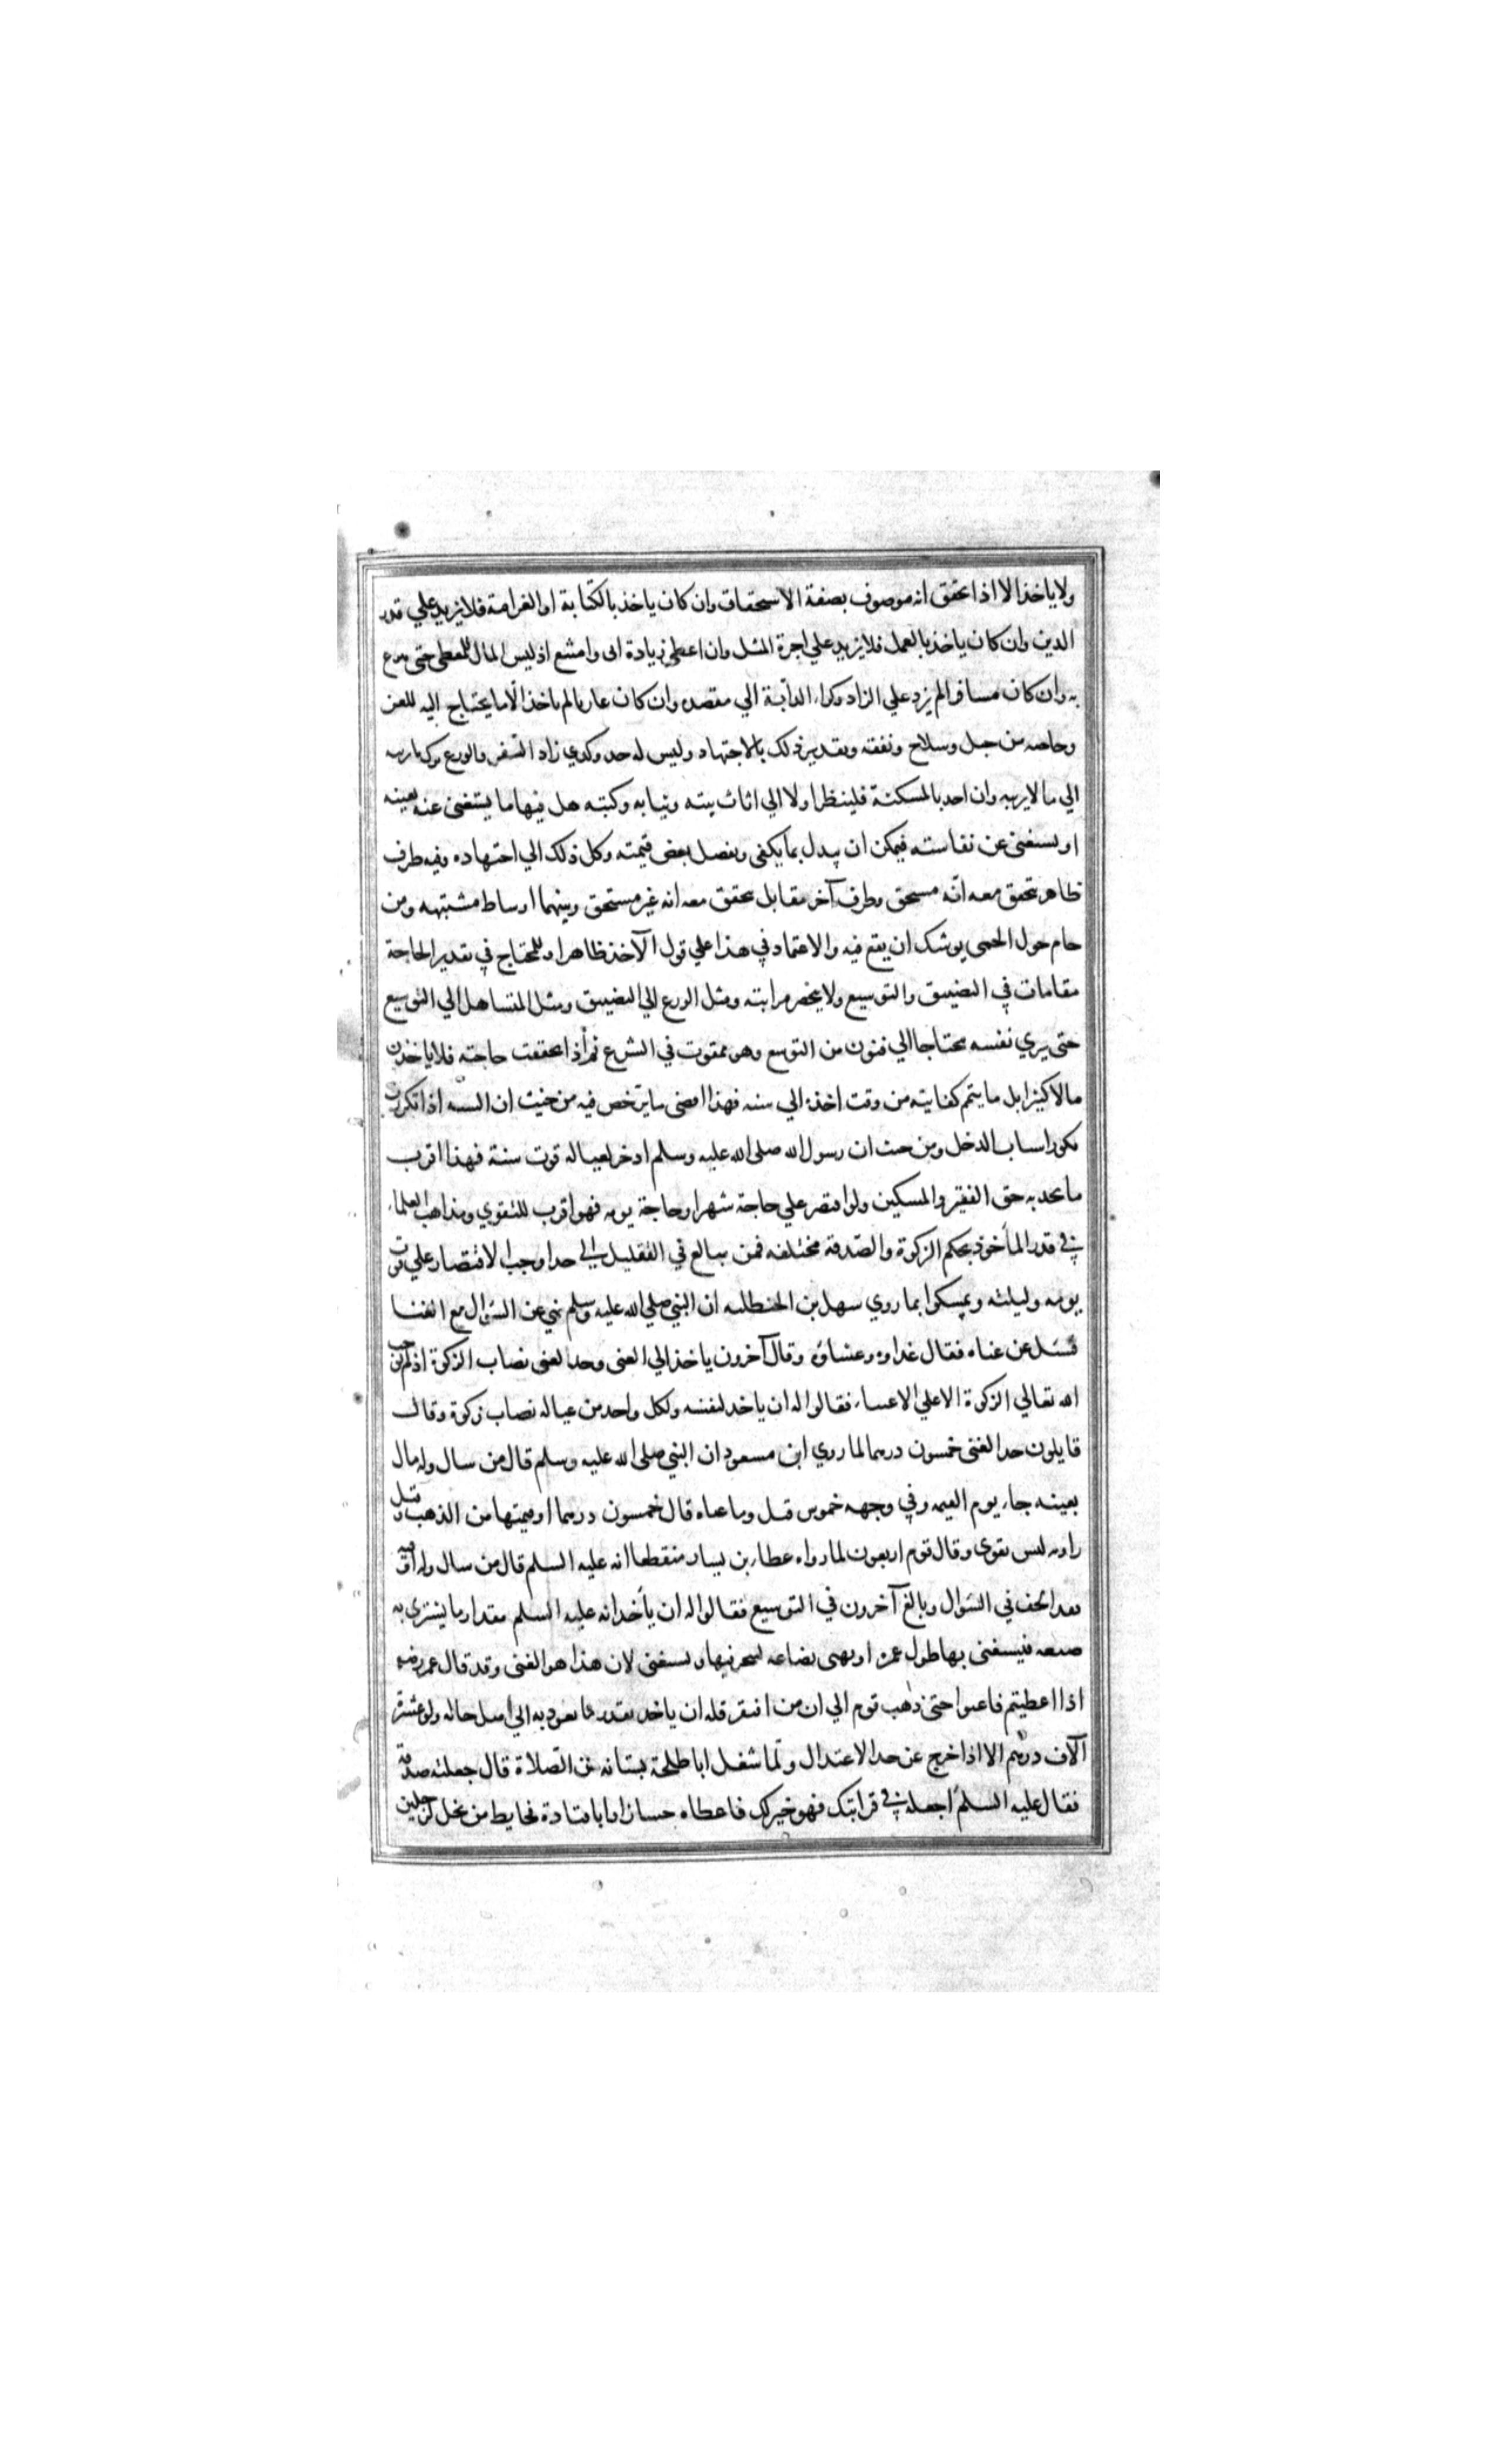 ولا ياخذ الا اذا تحقق انه موصوف بصفة الاستحقاق وان كان ياخذ بالكتابة او الغرامة فلا يزيد علي قدر
الدين وان كان ياخذ بالعمل فلا يزيد علي اجرة المثل وان اعطي زيادة ابى وامتنع اذ ليس المال للمعطي حتى يتبرع
به وان كان مسافرا لم يزد علي الزاد وكراء الدابة الي مقصده وان كان غازيا لم ياخذ الا ما يحتاج اليه للغزو
وخاصه من خيل وسلاح ونفقه وتقدير ذلك بالاجتهاد وليس له حد وكذي زاد السفر والورع ترك ما يريبه
الي ما لا يريبه وان اخذ بالمسكنة فلينظر اولا الي اثاث بيته وثيابه وكتبه هل فيها ما يستغنى عنه بعينه
او يستغنى عن نفاسته فيمكن ان يبدل بما يكفي ويفضل بعض قيمته وكل ذلك الي اجتهاده وفيه طرف
ظاهر يتحقق معه انه مستحق وطرف آخر مقابل يتحقق معه انه غير مستحق وبينهما اوساط مشتبهه ومن
حام حول الحمى يوشك ان يقع فيه والاعتماد في هذا علي قول الآخذ ظاهرا وللمحتاج في تقدير الحاجة
مقامات في التضييق والتوسيع ولا ينحصر مراتبه وميل الورع الي التضييق وميل المتساهل الي التوسيع
حتى يري نفسه محتاجا الي فنون من التوسع وهو ممقوت في الشرع ثم اذا تحققت حاجته فلا ياخذن
مالا كثيرا بل ما يتم كفايته من وقت اخذه الي سنه فهذا اقصى ما يترخص فيه من حيث ان السنه اذا تكررت
تكرر اسباب الدخل ومن حيث ان رسول الله صلى الله عليه وسلم ادخر لعياله قوت سنة فهذا اقرب
ما يحد به حق الفقير والمسكين ولو اقتصر علي حاجة شهر او حاجة يومه فهو اقرب للتقوي ومذاهب العلماء
في قدر المأخوذ بحكم الزكوة والصدقة مختلفه فمن مبالغ في التقليل الي حد اوجب الاقتصار علي قوت
يومه وليلته وتمسكوا بما روي سهل بن الحنظليه ان النبي صلي الله عليه وسلم نهي عن السؤال مع الغنا
فسئل عن غناه فقال غداوه وعشاؤه وقال آخرون ياخذ الي الغنى وحد الغنى نصاب الزكوة اذ لم يوجب
الله تعالي الزكوة الا علي الاغنياء فقالوا له ان ياخذ لنفسه ولكل واحد من عياله نصاب زكوة وقال
قايلون حد الغنى خمسون درهما لما روي ابن مسعود ان النبي صلى الله عليه وسلم قال من سال وله مال
يغنيه جاء يوم القيمه وفي وجهه خموس قيل وما غناه قال خمسون درهما او قيمتها من الذهب وقيل
راويه ليس بقوى وقال قوم اربعون لما رواه عطاء بن يسار منقطعا انه عليه السلم قال من سال وله اوقيه
فقد الحف في السؤال وبالغ آخرون في التوسيع فقالوا له ان يأخذ انه عليه السلم مقدار ما يشتري به
ضيعه فيستغنى بها طول عمره او يهيى بضاعه ليتجر فيها ويستغنى لان هذا هو الغنى وقد قال عمر رضه
اذا اعطيتم فاغنوا حتى ذهب قوم الي ان من افتقر فله ان ياخذ بقدر ما يعود به الي اصل حاله ولو عشرة
آلاف درهم الا اذا خرج عن حد الاعتدال ولما شغل ابا طلحة بستانه عن الصلاة قال جعلته صدقة
فقال عليه السلم اجعله في قرابتك فهو خير لك فاعطاه حسان وابا قتادة فحايط من نخل لرجلين